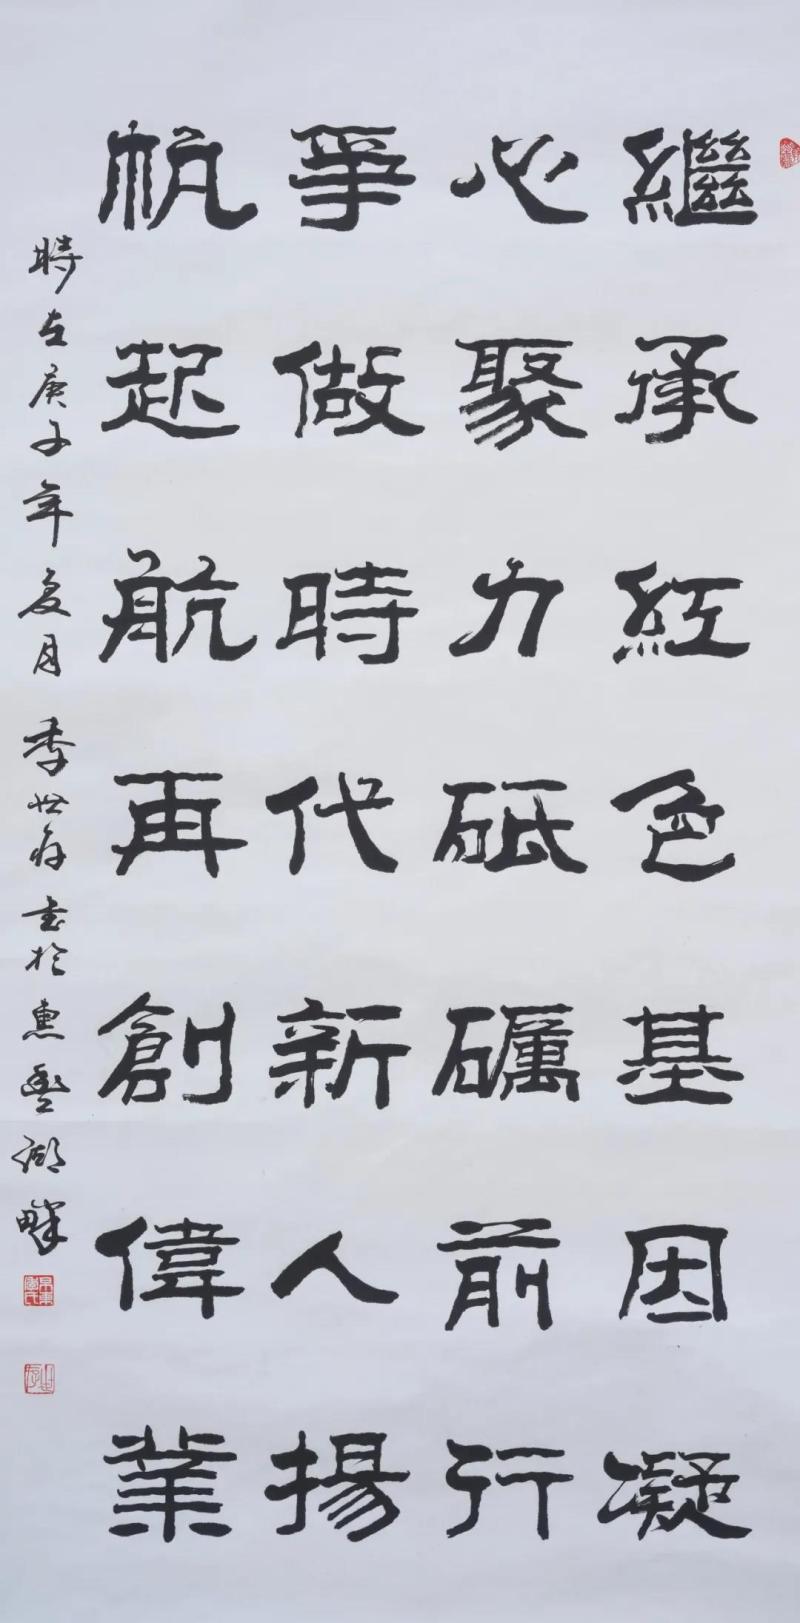 繼承紅色基因凝
心聚力砥礪前行
爭做時代新人揚
帆起航再創偉業
時在庚子年夏月李世存書於惠豐湖畔